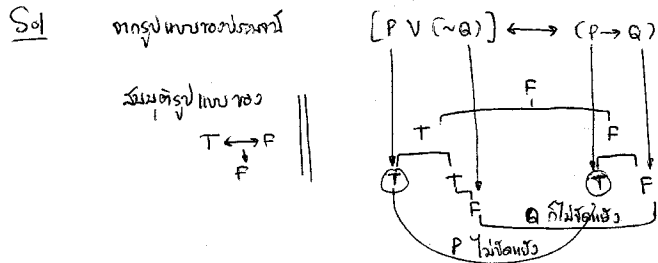 Sol จากรูปแบบของประพจน์ [P ∨ (~Q)] ⟷ (P → Q)
สมมุติรูปแบบของ
T ⟷ F
F
F
T F
T T T F
F
Q ก็ไม่ขัดแย้ง
P ไม่ขัดแย้ง